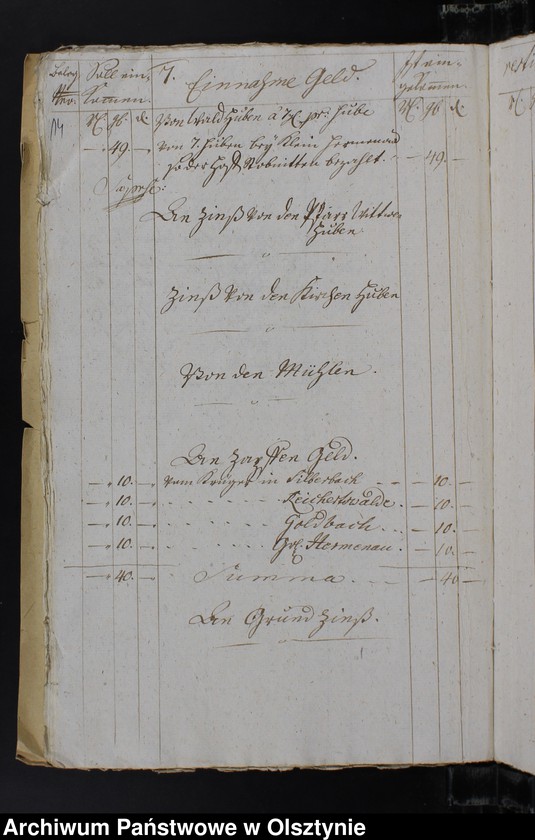 Belag Soll ein- 7. Einnahme Geld. Ist ein-
Nro. kommen. gekommen.
14 Von Wald Huben à 7 gr: Hube
— 49. — von 7. Huben beÿ Klein Hermenau
so der Hoff bezahlt. — 49 —
An Zinß von den Pfarr Wittwen
Huben
Zinß von den Kirchen Huben
Von den Mühlen.
An Zapffen Geld.
— 10. — vom Kruger in Silberbach — 10. —
— 10. — Reichertswalde. — 10. —
— 10. — Goldbach. — 10. —
— 10. — Gr. Hermenau. — 10. —
— 40. — Summa. — 40 —
An Grund Zinß.
Archiwum Państwowe w Olsztynie